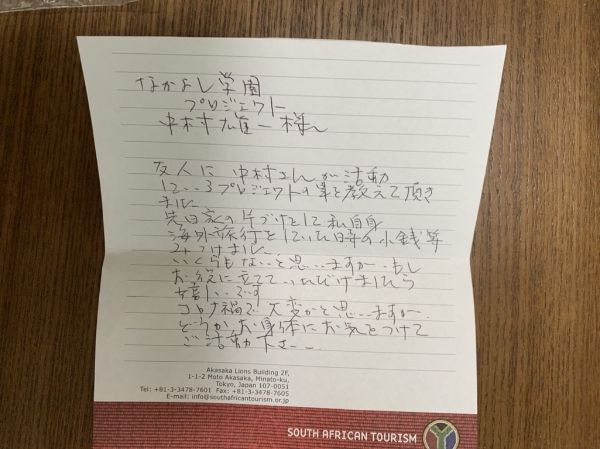 なかよし学園
プロジェクト
中村雄一様
友人に中村さんが活動
しているプロジェクトの事を教えて頂き
ました
先日家の片づけをして私自身
海外旅行をしていた時の小銭等
みつけました
いくらもないと思いますが、もし
お役に立てていただけましたら
嬉しいです
コロナ禍で大変かと思いますが、
どうかお身体にお気をつけて
ご活動下さい
Akasaka Lions Building 2F,
1-1-2 Moto Akasaka, Minato-ku,
Tokyo, Japan 107-0051
Tel: +81-3-3478-7601 Fax: +81-3-3478-7605
E-mail: info@southafricantourism.or.jp
SOUTH AFRICAN TOURISM